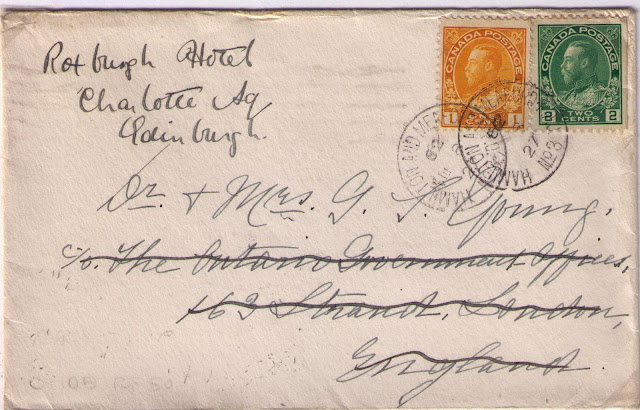 Roxburgh Hotel
Charlotte Sq
Edinburgh.
CANADA POSTAGE
1 1
CANADA POSTAGE
2 TWO CENTS 2
27
No3
Dr. & Mrs. G. S. Young,
c/o. The Ontario Government Offices,
163 Strand, London,
England.